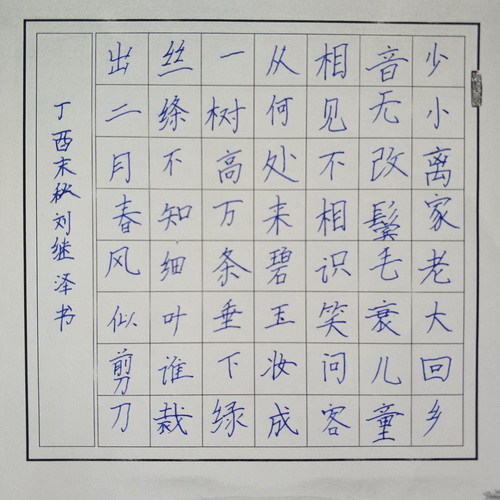 少小离家老大回乡
音无改鬓毛衰儿童
相见不相识笑问客
从何处来碧玉妆成
一树高万条垂下绿
丝绦不知细叶谁裁
出二月春风似剪刀
丁酉末秋刘继泽书